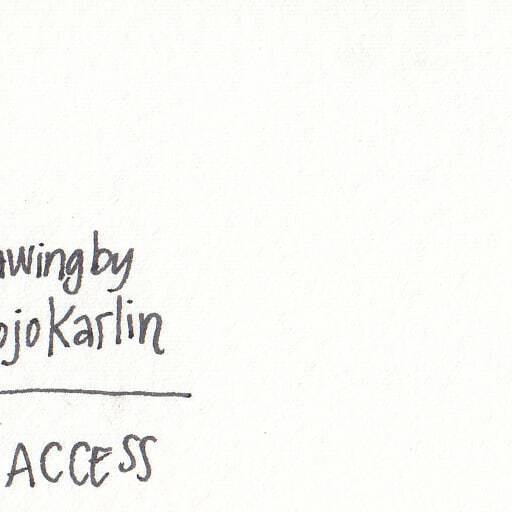 awing by
ojo Karlin
ACCESS